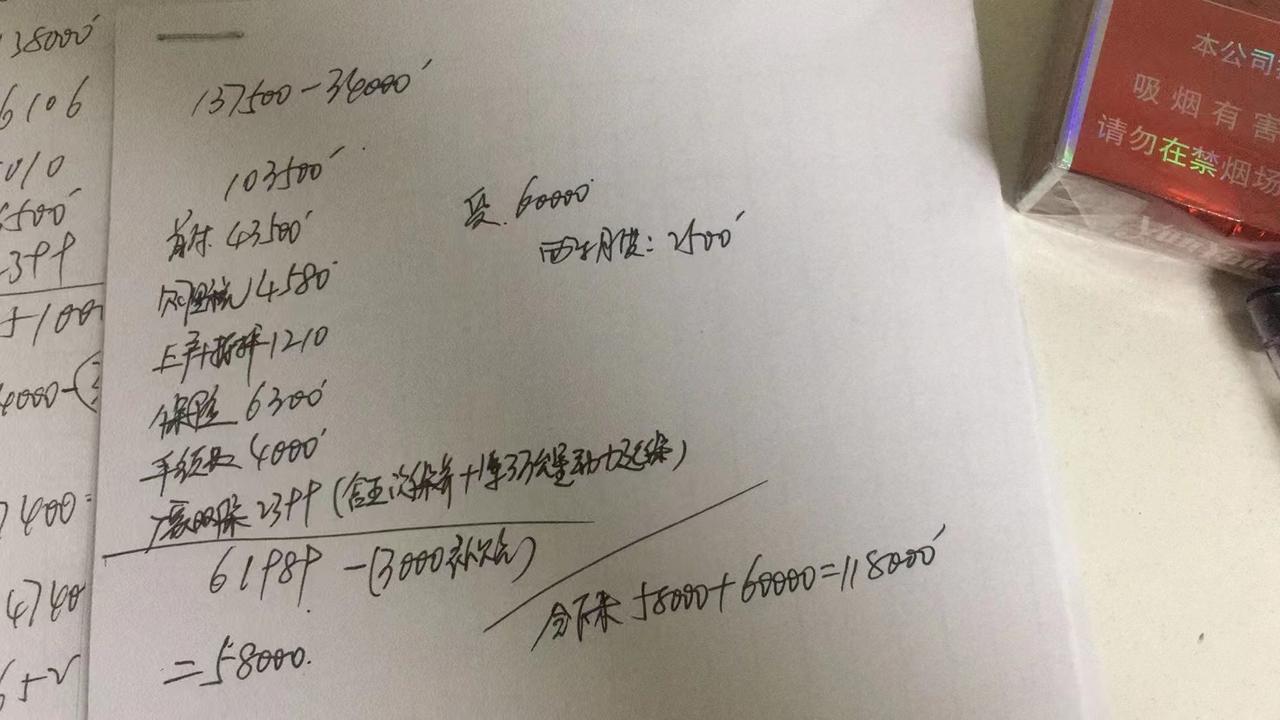 38000
6106
010
6500
2399
5100
4000-(3
7400=
4740
137500-34000
103500
首付 43500
购置税 14580
上户+拓牌 1210
保险 6300
手续费 4000
厂家双保 2399 (含五次保养+1年3万公里动力延保)
61989 -(3000补贴)
=58000.
贷. 60000
两年月供: 2500
合下来 58000+60000=118000
本公司
吸烟有害
请勿在禁烟场